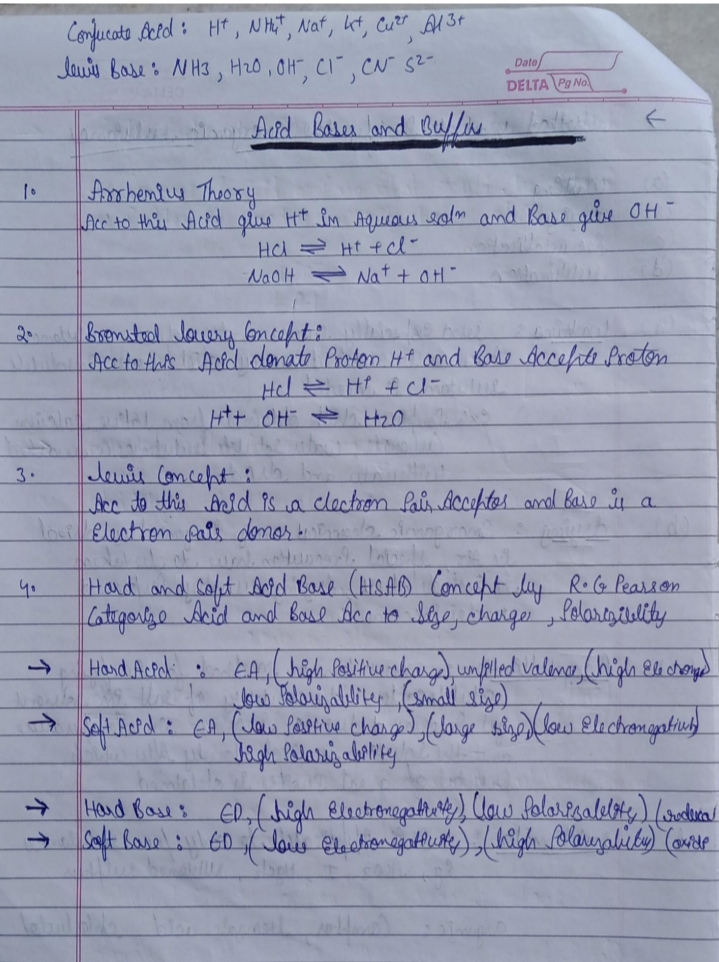 Conjucate Acid : H+, NH4+, Na+, K+, Cu2+, Al3+
Lewis Base : NH3, H2O, OH-, Cl-, CN- S2-
Date
DELTA Pg No.
Acid Bases and Buffer
←
1. Arrhenius Theory
Acc to this Acid give H+ in Aqueous soln and Base give OH-
HCl ⇌ H+ + Cl-
NaOH ⇌ Na+ + OH-
2. Bronsted Lowery Concept :
Acc to this Acid donate Proton H+ and Base Accepts Proton
HCl ⇌ H+ + Cl-
H+ + OH- ⇌ H2O
3. Lewis Concept :
Acc to this Acid is a electron Pair Acceptor and Base is a
Electron pair donor.
4. Hard and Soft Acid Base (HSAB) Concept by R.G Pearson
Categorize Acid and Base Acc to Size, charge, Polarizibility
→ Hard Acid : EA, (high Positive charge), unfilled valence, (high Ele
low Polarizability, (small size)
→ Soft Acid : EA, (low Positive charge), (large size) (low Electronegativity)
high Polarizability
→ Hard Base : ED, (high Electronegativity), (low Polarizability)
→ Soft Base : ED, (low Electronegativity), (high Polaryability) (oxide